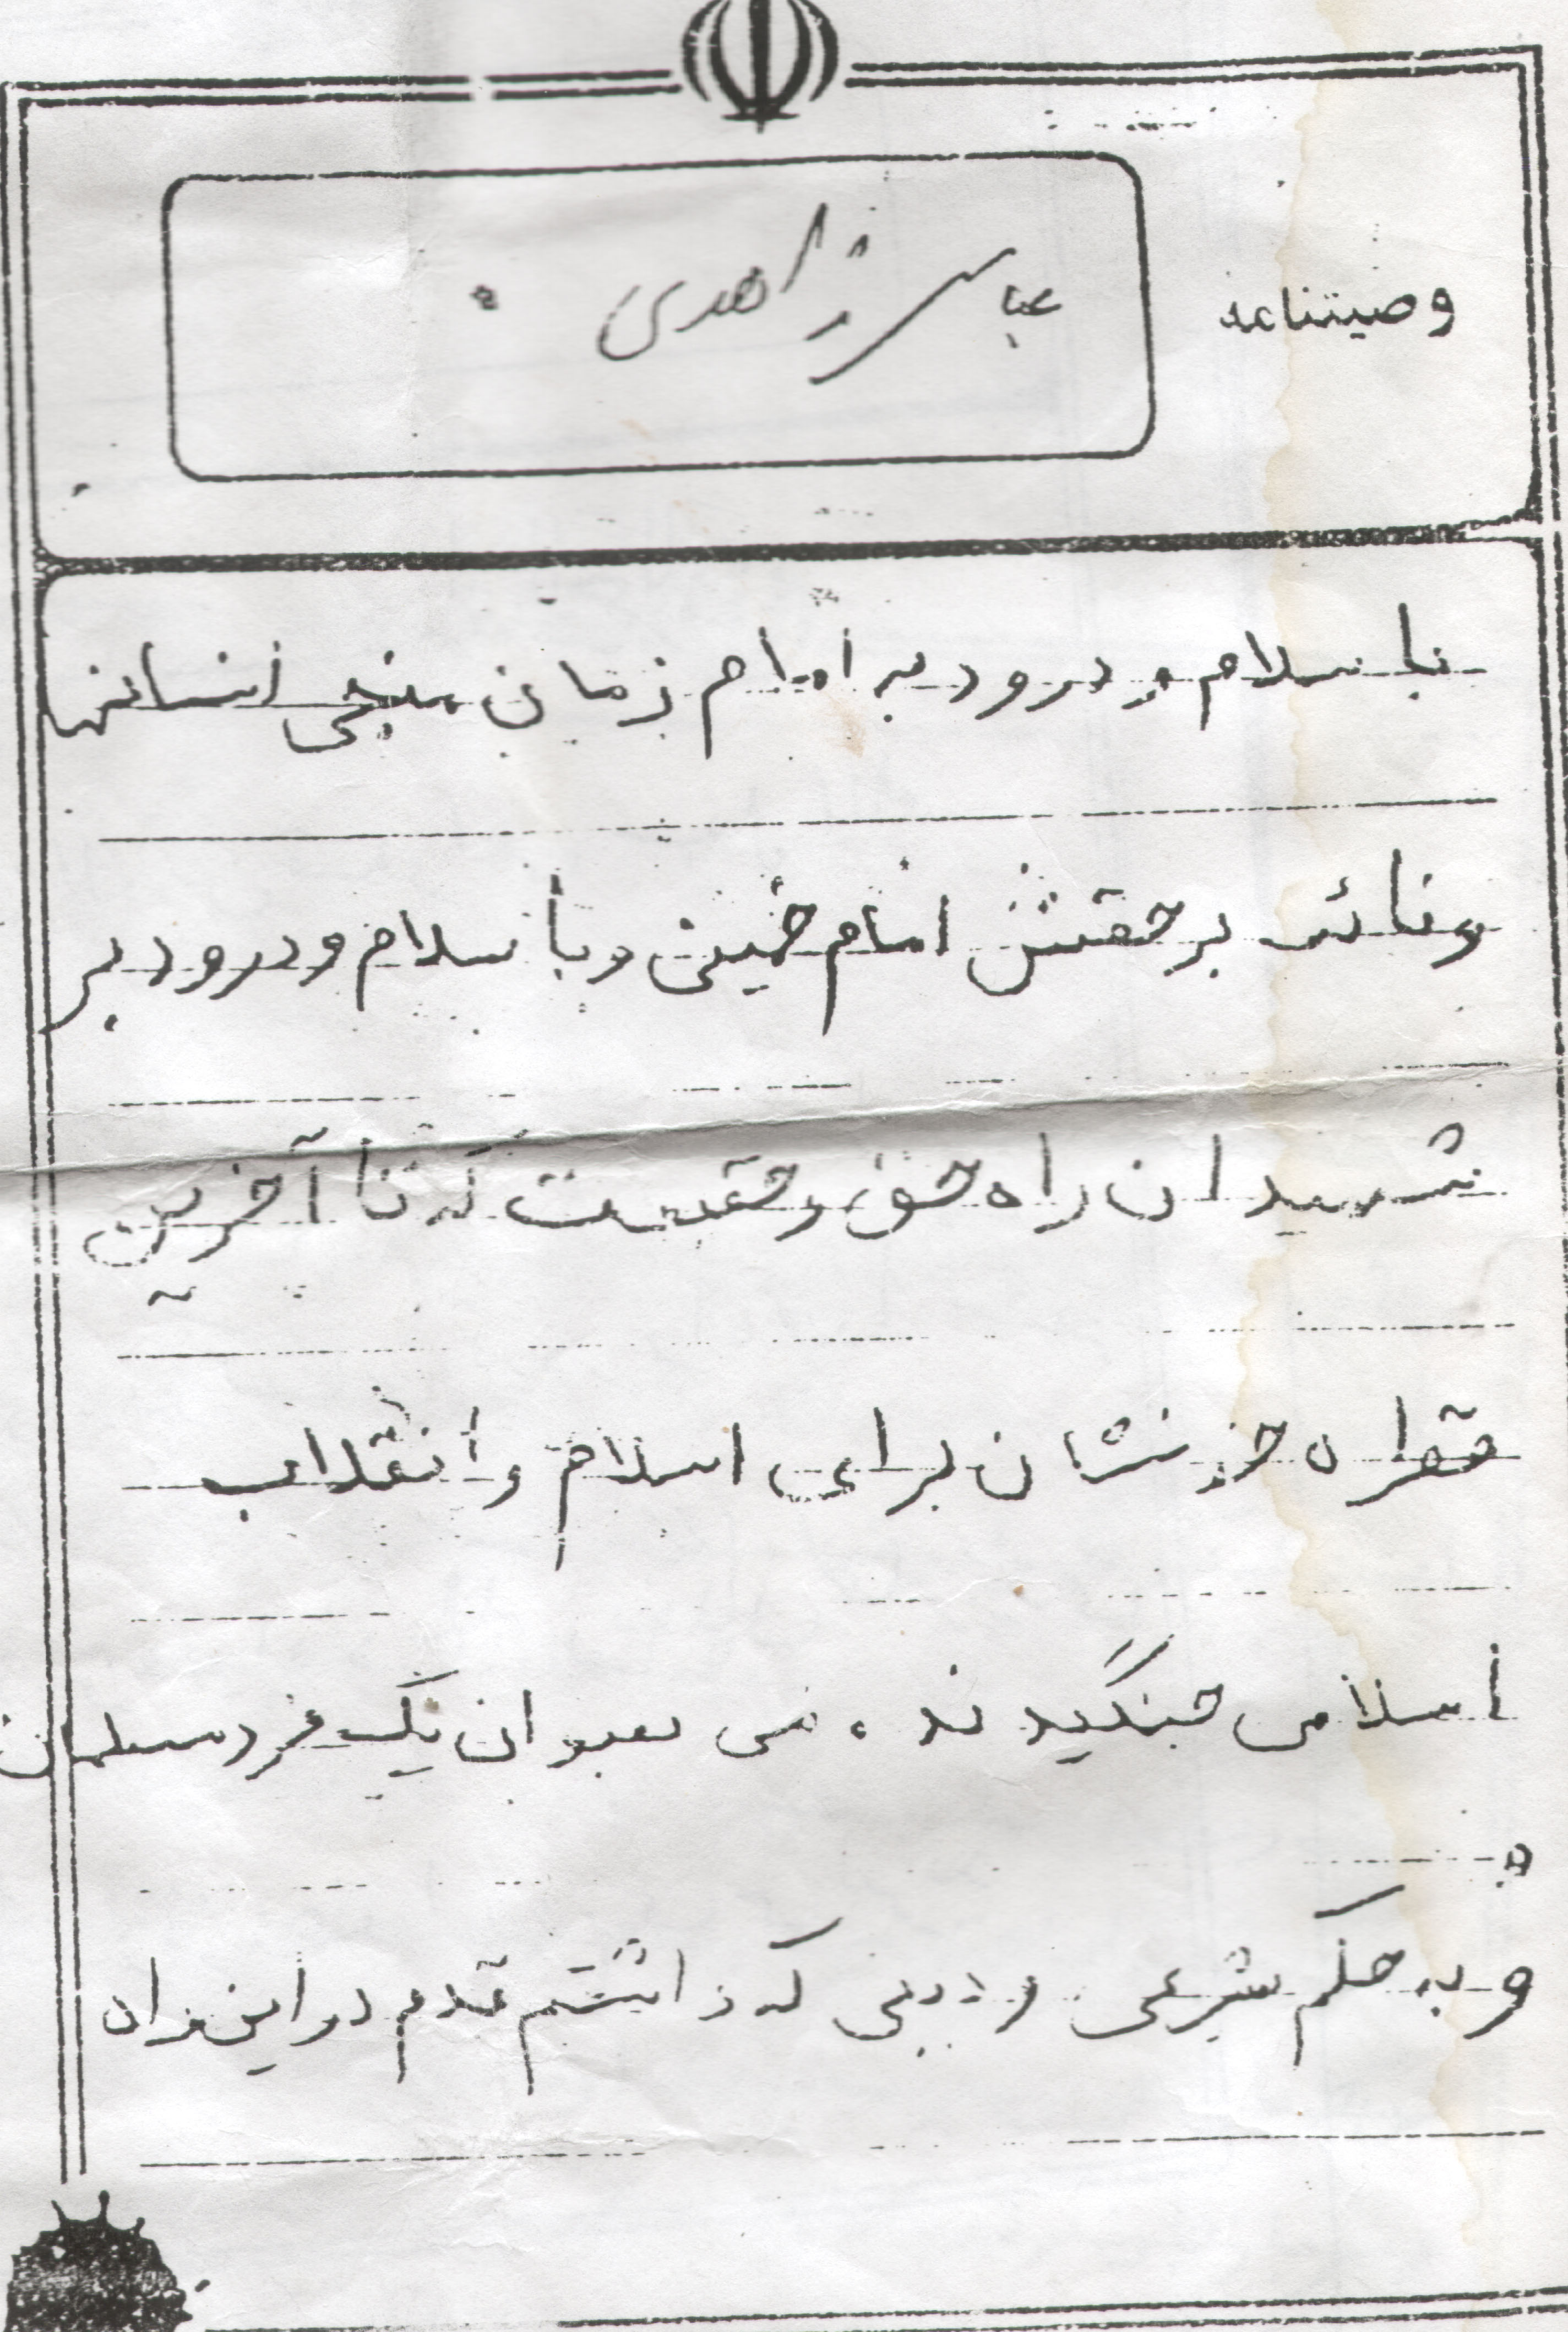 وصیتنامه
عباس زاهدی
با سلام و درود به امام زمان منجی انسانها
و نائب برحقش امام خمینی و با سلام و درود بر
شهیدان راه حق و حقیقت که تا آخرین
قطره خونشان برای اسلام و انقلاب
اسلامی جنگیدند، من بعنوان یک فرد مسلمان
و به حکم شرعی و دینی که داشتم قدم در این راه